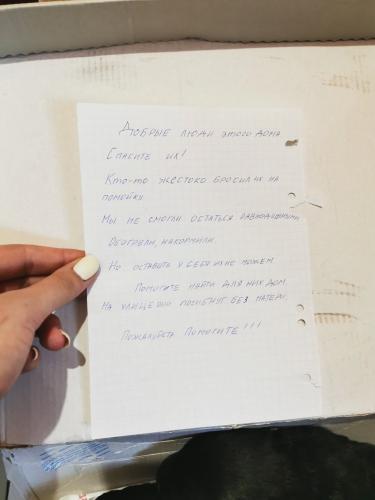 Добрые люди этого дома
Спасите их!
Кто-то жестоко бросил их на
помойку.
Мы не смогли остаться равнодушными
Обогрели, накормили.
Но оставить у себя их не можем
Помогите найти для них дом
На улице они погибнут без матери.
Пожалуйста помогите!!!